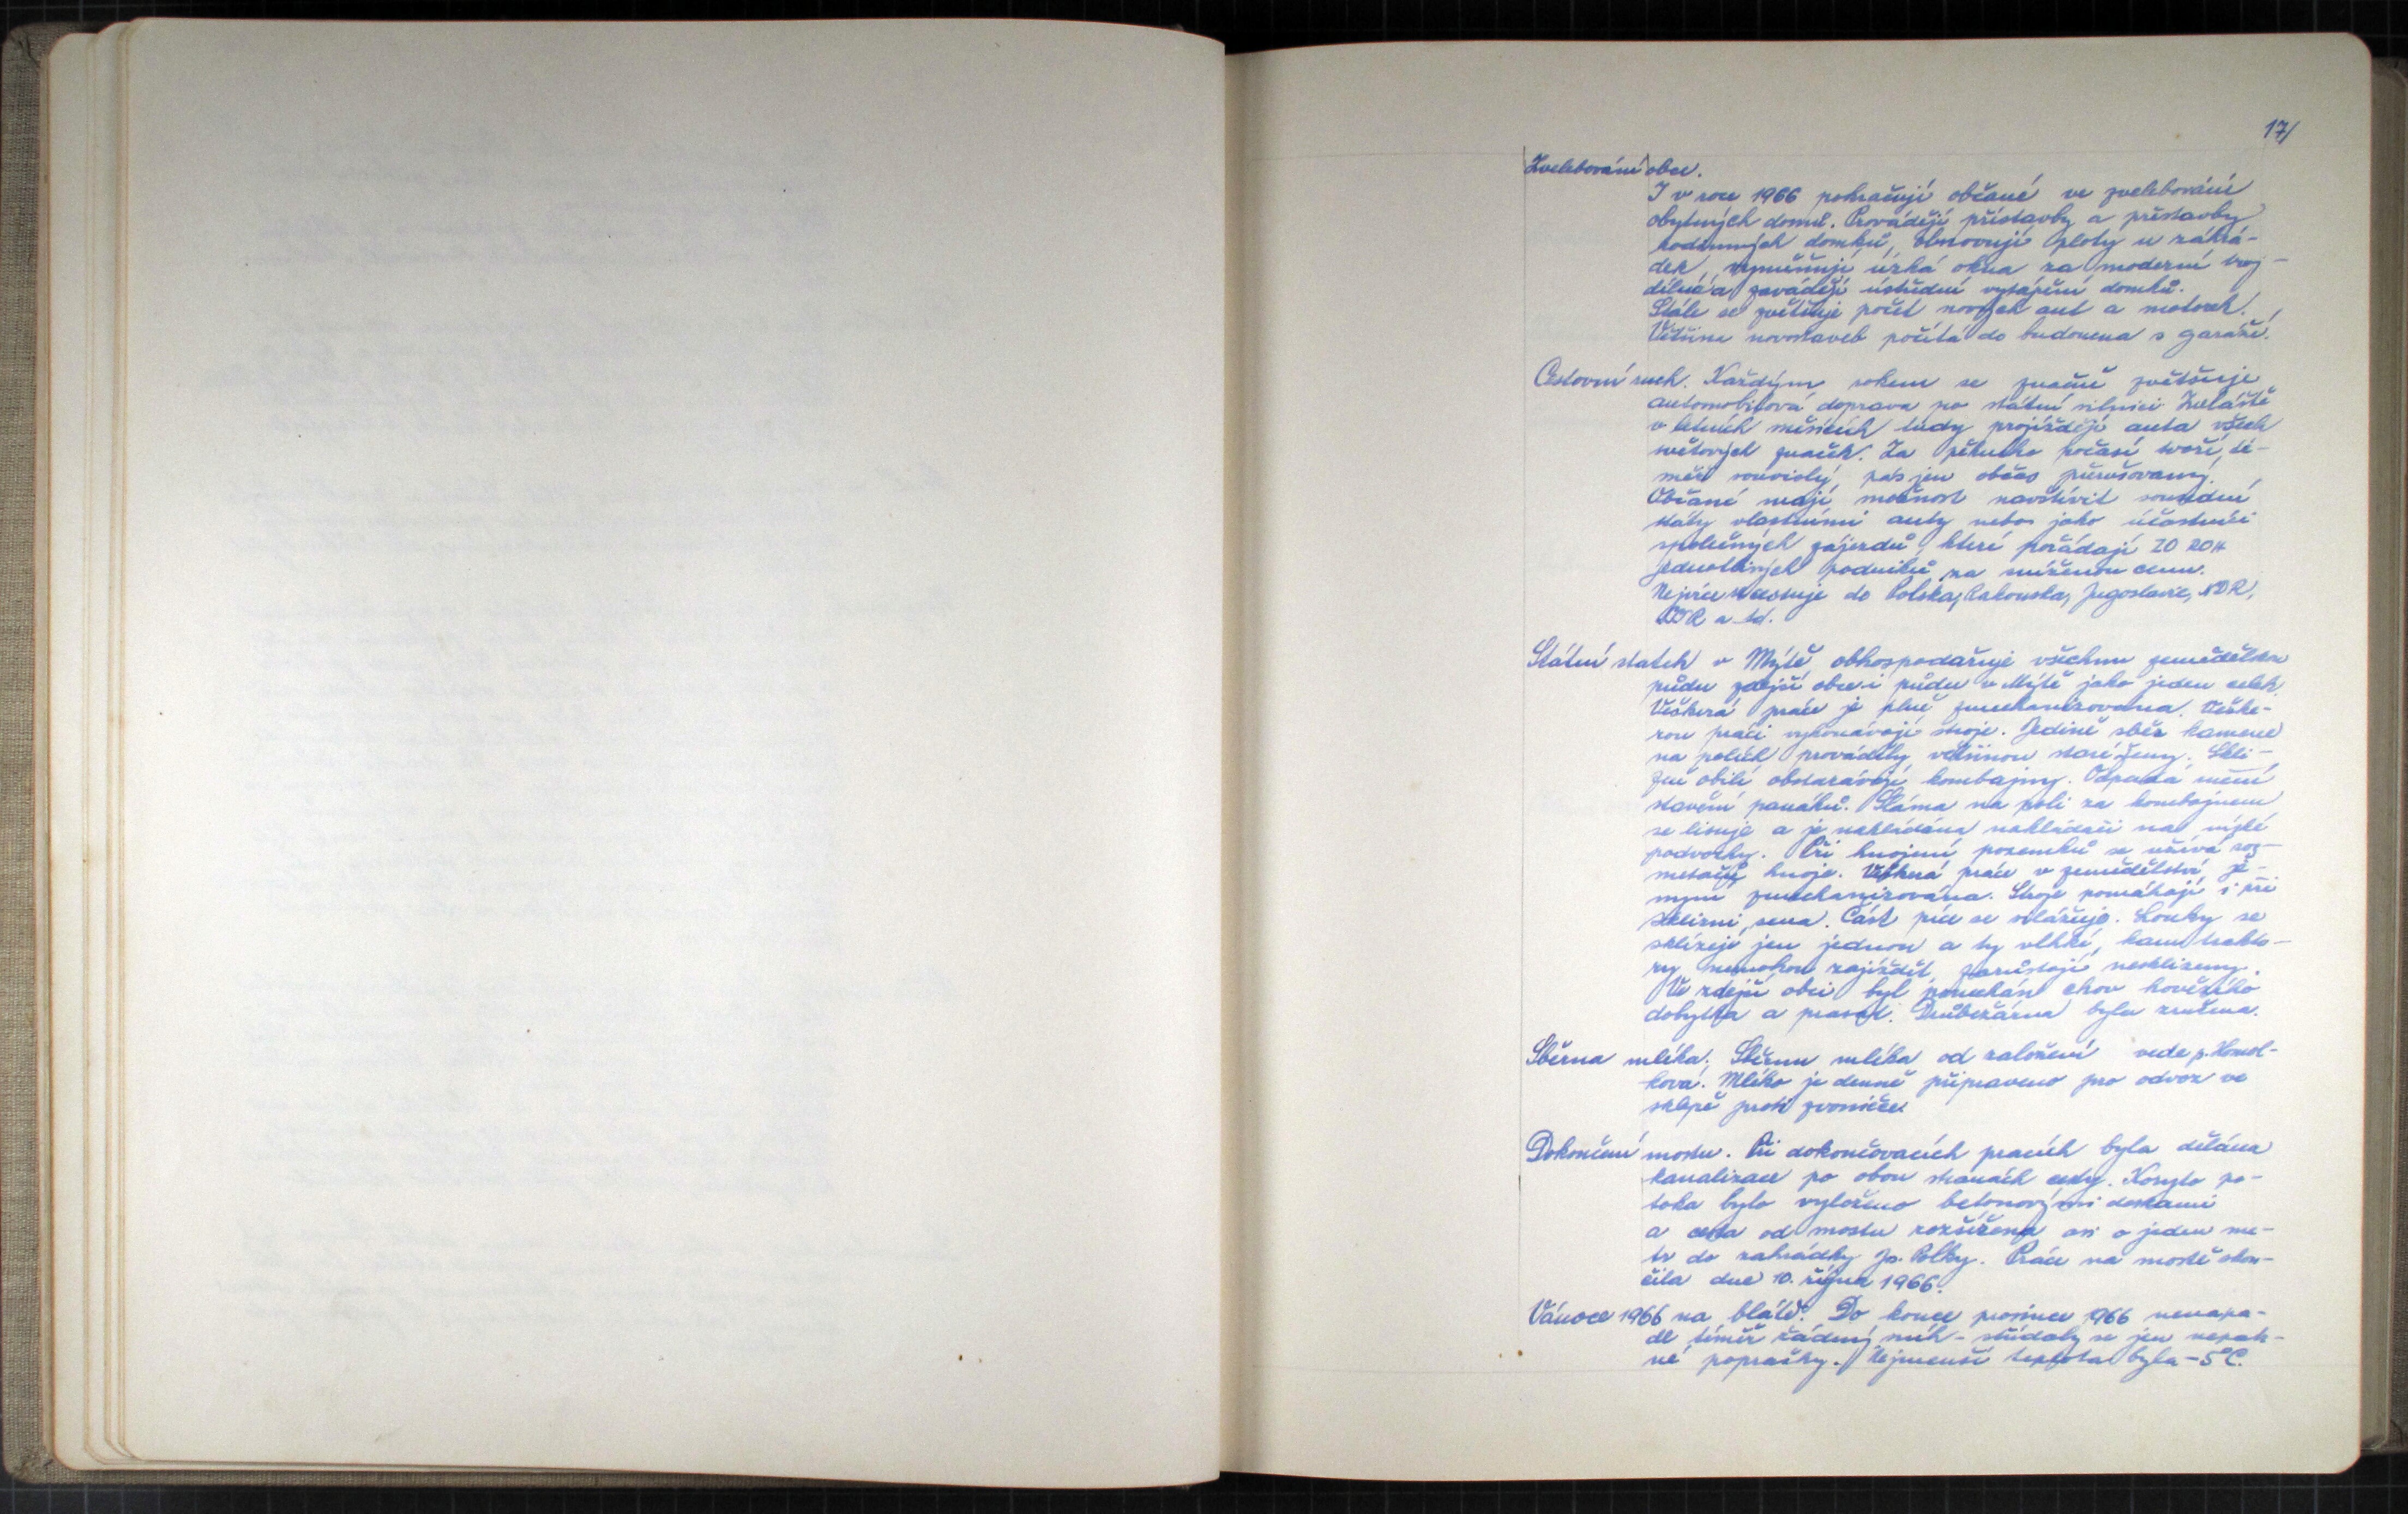 17/
Zvelebování obce.
I v roce 1966 pokračují občané ve zvelebování
obytných domů. Provádějí přístavby a přestavby
rodinných domků, obnovují ploty u záhrá-
dek, vyměňují úzká okna za moderní troj-
dílná a zavádějí ústřední vytápění domků.
Stále se zvětšuje počet nových aut a motorek.
Většina novostaveb počítá do budoucna s garáží.
Cestovní ruch. Každým rokem se značně zvětšuje
automobilová doprava po státní silnici Zvláště
v letních měsících tudy projíždějí auta všech
světových značek. Za pěkného počasí tvoří té-
měř souvislý pás jen občas přerušovaný.
Občané mají možnost navštívit sousední
státy vlastními auty nebo jako účastníci
společných zájezdů, které pořádají ZO ROH
jednotlivých podniků za sníženou cenu.
Nejvíce se cestuje do Polska, Rakouska, Jugoslavie, NDR,
a td.
Státní statek v Mýtě obhospodařuje všechnu zemědělskou
půdu zdejší obce i půdu v Mýtě jako jeden celek.
Veškerá práce je plně zmechanizována. Veške-
rou práci vykonávají stroje. Jedině sběr kamene
na polích prováděly většinou staré ženy. Skli-
zeň obilí obstarávají kombajny. Odpadá
stavění panáků. Sláma na poli za kombajnem
se lisuje a je nakládána nakladači na nízké
podvozky. Při hnojení pozemků se užívá roz-
metačů hnoje. Veškerá práce v zemědělství je
nyní zmechanizována. Stroje pomáhají i při
sklizni sena. Část píce se silážuje. Louky se
sklízejí jen jednou a ty vlhké, kam trakto-
ry nemohou zajíždět, zarůstají nesklizeny.
Ve zdejší obci byl ponechán chov hovězího
dobytka a prasat. Drůbežárna byla zrušena.
Sběrna mléka. Sběrnu mléka od založení vede p. Homol-
ková. Mléko je denně připraveno pro odvoz ve
sklepě proti zvoničce.
Dokončení mostu. Při dokončovacích pracích byla dělána
kanalizace po obou stranách cesty. Koryto po-
toka bylo vyloženo betonovými deskami
a cesta od mostu rozšířena asi o jeden me-
tr do zahrádky Polky. Práce na mostě skon-
čila dne 10. října 1966.
Vánoce 1966 na blátě. Do konce prosince 1966 nenapa-
dl téměř žádný sníh - střídaly se jen nepatr-
né poprašky. Nejmenší teplota byla -5°C.